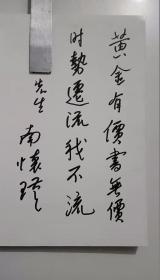 黃金有價書無價
时勢遷流我不流
先生
南懷瑾